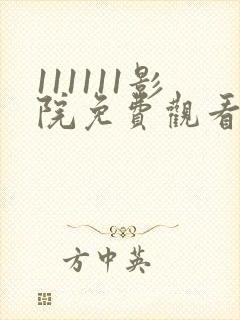 111111影
院免費觀看
方中英